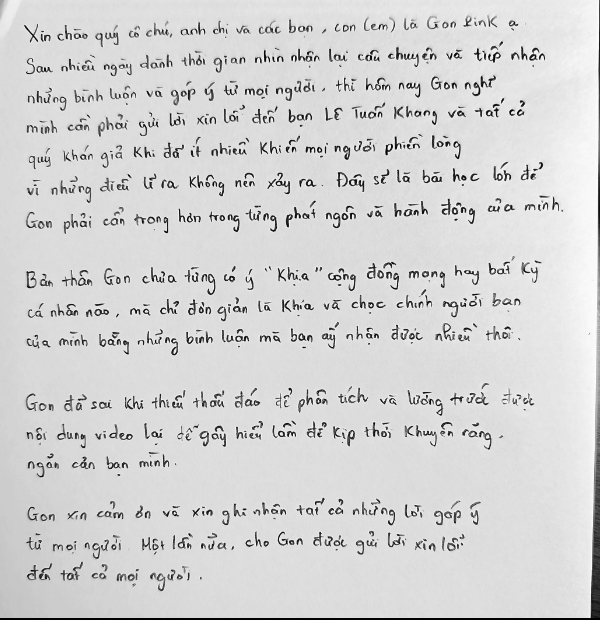 Xin chào quý cô chú, anh chị và các bạn, con (em) là Gon Link ạ.
Sau nhiều ngày dành thời gian nhìn nhận lại câu chuyện và tiếp nhận
những bình luận và góp ý từ mọi người, thì hôm nay Gon nghĩ
mình cần phải gửi lời xin lỗi đến bạn Lê Tuấn Khang và tất cả
quý khán giả khi đã ít nhiều khiến mọi người phiền lòng
vì những điều lẽ ra không nên xảy ra. Đây sẽ là bài học lớn để
Gon phải cẩn trọng hơn trong từng phát ngôn và hành động của mình.
Bản thân Gon chưa từng có ý "khịa" cộng đồng mạng hay bất kỳ
cá nhân nào, mà chỉ đơn giản là khịa và chọc chính người bạn
của mình bằng những bình luận mà bạn ấy nhận được nhiều thôi.
Gon đã sai khi thiếu thấu đáo để phân tích và lường trước được
nội dung video lại dễ gây hiểu lầm để kịp thời khuyên răng,
ngăn cản bạn mình.
Gon xin cảm ơn và xin ghi nhận tất cả những lời góp ý
từ mọi người. Một lần nữa, cho Gon được gửi lời xin lỗi
đến tất cả mọi người.